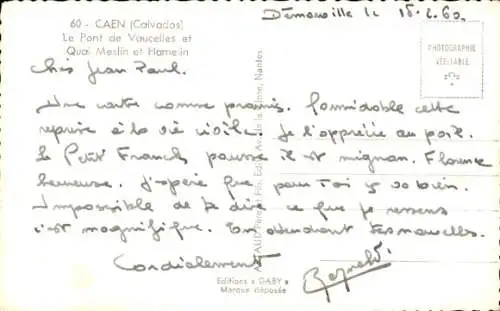 60 - CAEN (Calvados)
Le Pont de Vaucelles et
Quai Meslin et Hamelin
Démouville le 18.6.60
PHOTOGRAPHIE
VÉRITABLE
Chis Jean Paul.
Une carte comme promis. Formidable cette
reprise à la vie civile. Je l'apprécie au poil.
Le Petit Franck pousse il est mignon. Florence
heureuse. J'espère que pour Toi ça va bien.
Impossible de te dire ce que je ressens
c'est magnifique. En attendant tes nouvelles.
Cordialement
Editions « GABY »
Marque déposée
Père & Fils, Edit., Nantes